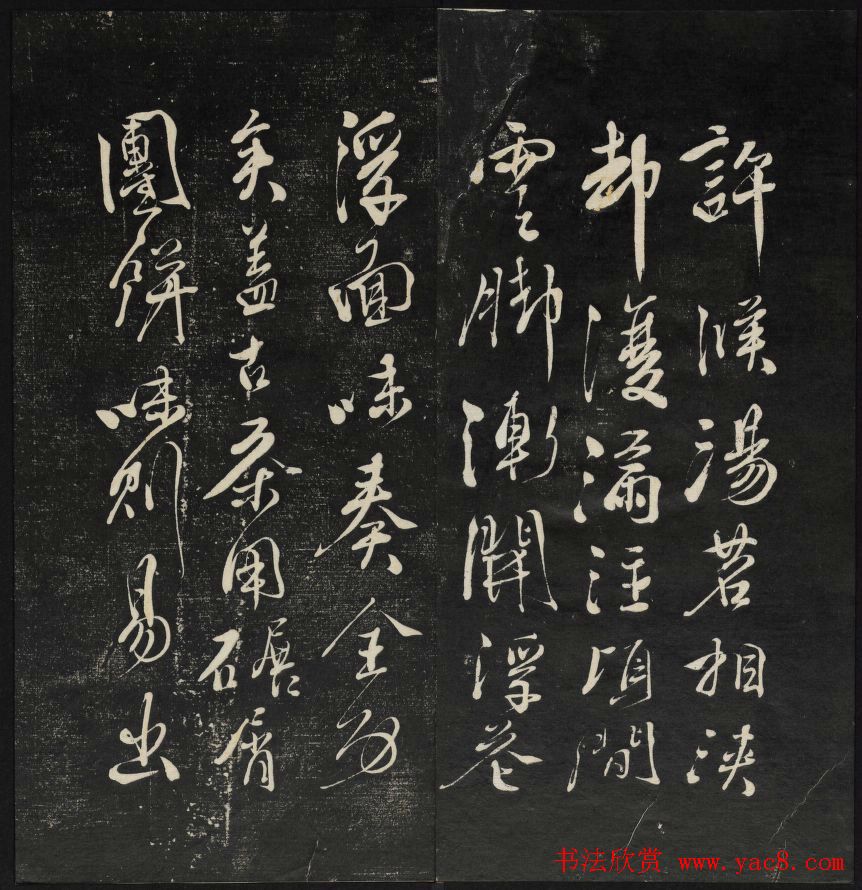 許候湯茗相浹
却復滿注頃間
雲脚漸開浮花
浮面味奏全功
矣盖古茶用碾屑
團餅味則易出
书法欣赏 www.yac8.com